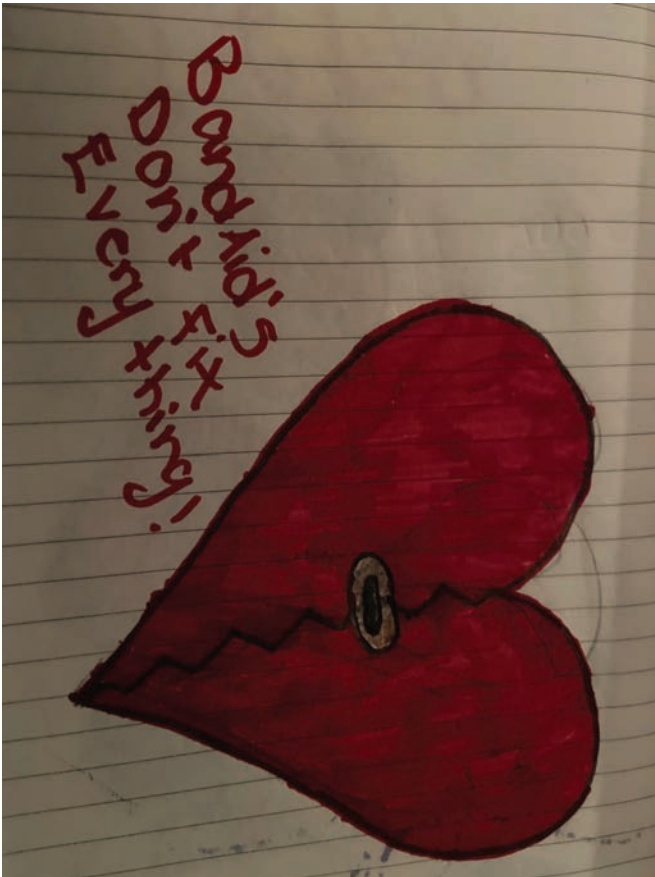 BandAid's
Don't fix
Every thing!